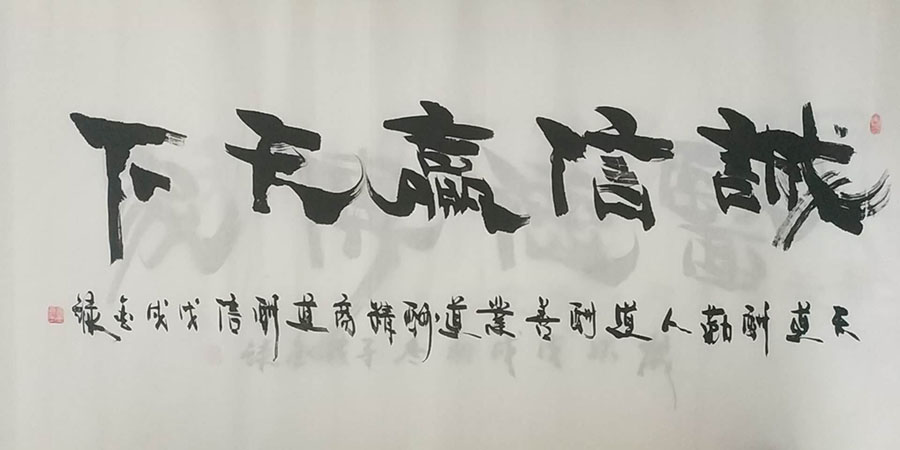 誠信贏天下
天道酬勤人道酬善業道酬精商道酬信戊戌